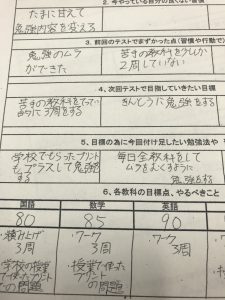 2. 今やっている自分の良くない習慣
たまに甘えて
勉強内容を変える
3. 前回のテストでまずかった点（習慣や行動で）
勉強のムラ
ができた
苦手の教科を少しか
2周していない
4. 次回テストで目指していきたい目標
苦手の教科を
3周をする
きんとうに勉強をする
5. 目標の為に今回付け足したい勉強法や
学校でもらったプリント
もプラスして勉強
する
毎日全教科をして
ムラをなくすように
勉強をする
6. 各教科の目標点、やるべきこと
国語 数学 英語
80 85 90
・積み上げ
3周
・ワーク
3周
・ワーク
3周
・学校の授業
で使った
プリント
の問題
・授業で使った
プリント
の問題